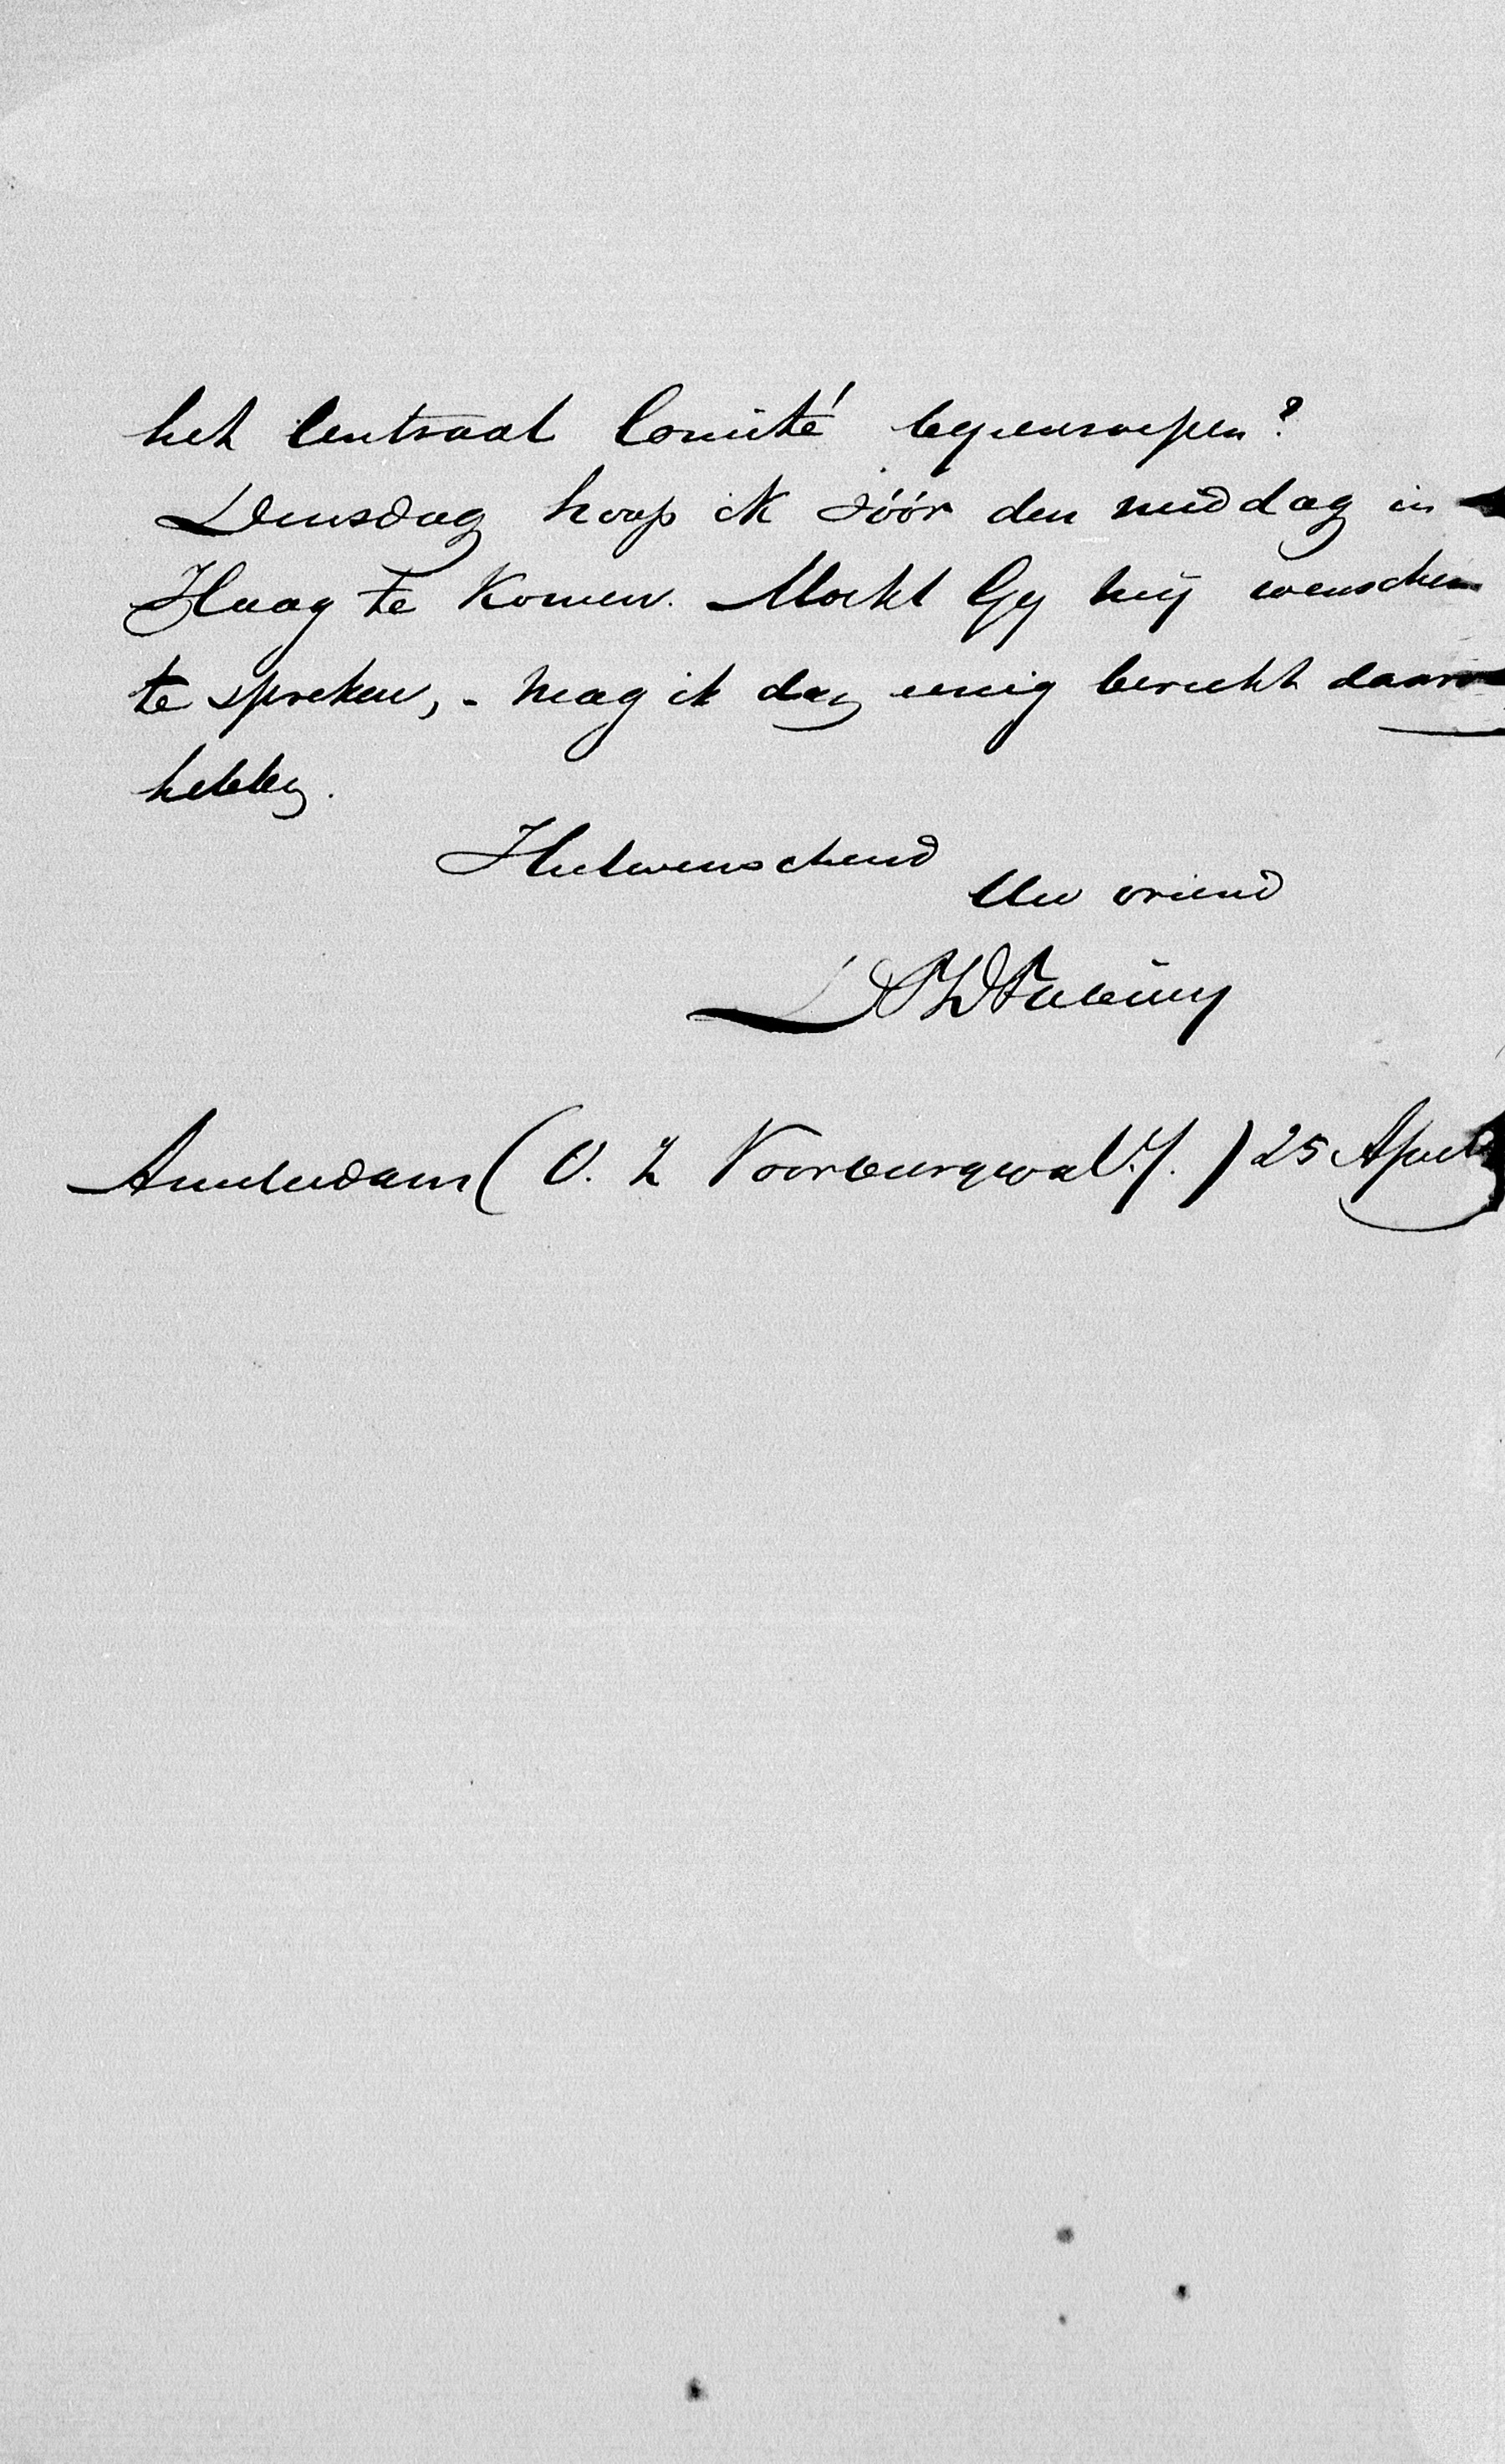 het Centraal Comité bijeenroepen?
Dinsdag hoop ik vóór den middag in
Haag te komen. Mocht Gy mij wenschen
te spreken, - mag ik dan eenig bericht daarv
hebben.
Heilwenschend
Uw vriend
Amsterdam (O. Z Voorburgwal. ) 25 April